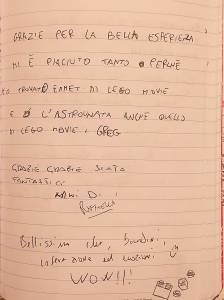 GRAZIE PER LA BELLA ESPERIENZA
MI È PIACIUTO TANTO PERCHÈ
HO TROVATO EMMET DI LEGO MOVIE
E L'ASTRONAUTA ANCHE QUELLO
DI LEGO MOVIE, GREG
GRAZIE GRAZIE SIETE
FANTASTICI
DI
RAFFAELE
Bellissima idea, bravissimi,
ed
WOW!!!